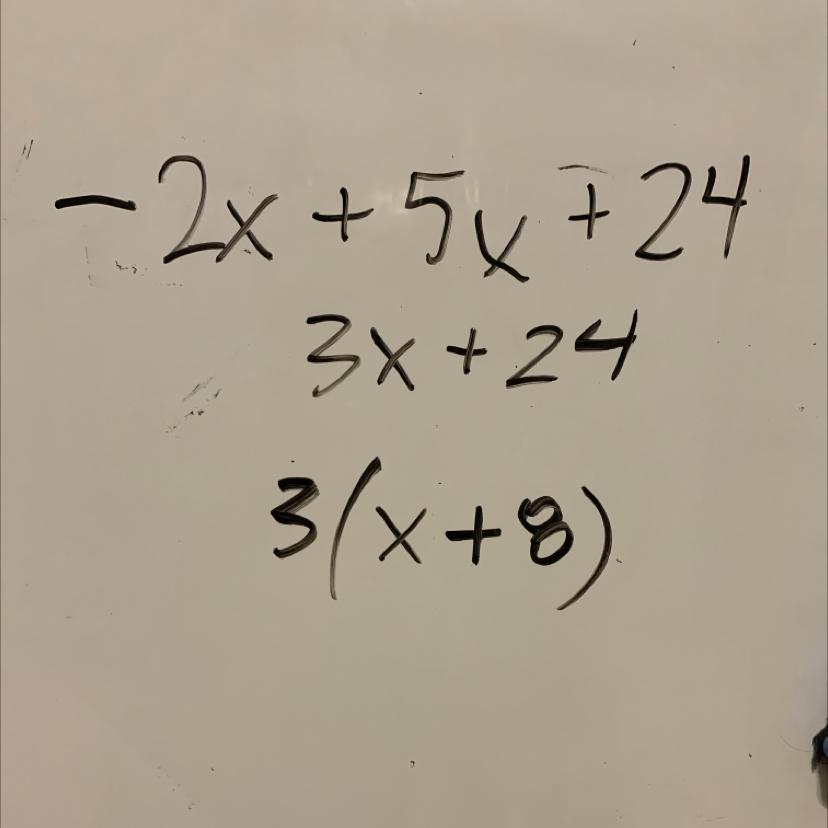 -2x + 5x + 24
3x + 24
3(x + 8)